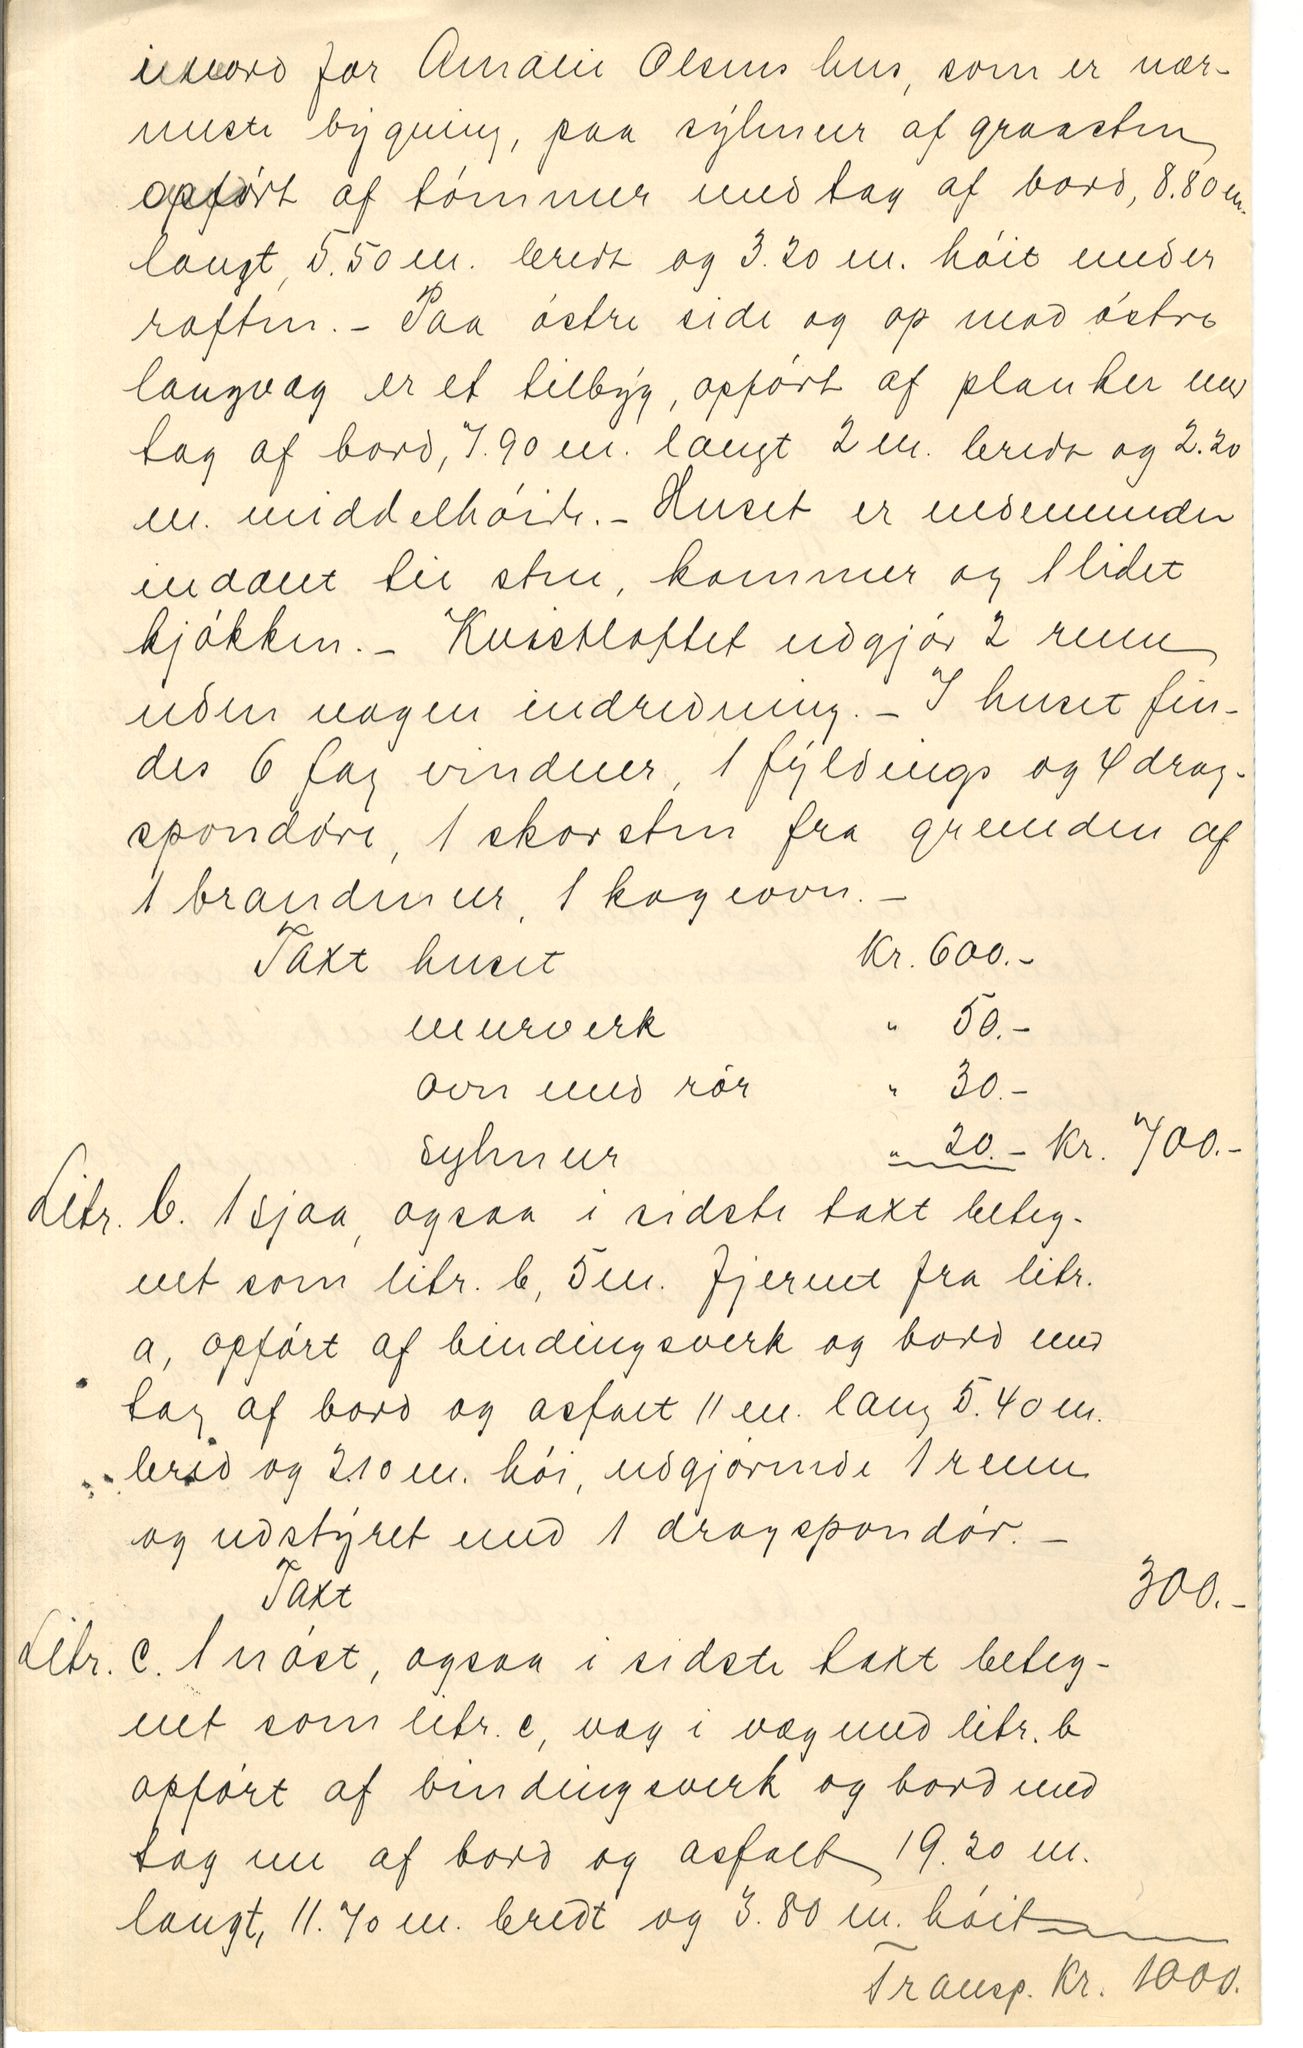 for Amalie Olsens hus, som er nær-
meste bygning, paa sylmur af graasten
opført af tømmer med tag af bord, 8.80 m.
langt, 5.50 m. bredt og 3.20 m. høit under
raften. - Paa østre side og op mod østre
langvæg er et tilbyg, opført af planker med
tag af bord, 7.90 m. langt 2 m. bredt og 2.20
m. middelhøide. - Huset er nedenunder
inddelt til stue, kammer og 1 lidet
kjøkken. - Kvistloftet udgjør 2 rum
uden nogen indredning. - I huset fin-
des 6 fag vinduer, 1 fyldings og 4 drag-
spondøre, 1 skorsten fra grunden af
1 brandmur, 1 kogeovn. -
Taxt huset Kr. 600.-
murverk " 50.-
ovn med rør " 30.-
sylmur " 20.- Kr. 700.-
Litr. b. 1 sjaa, ogsaa i sidste taxt beteg-
net som litr. b, 5 m. fjernet fra litr.
a, opført af bindingsverk og bord med
tag af bord og asfalt 11 m. lang 5.40 m.
bred og 2.10 m. høi, udgjørende 1 rum
og udstyret med 1 dragspondør. -
Taxt 300.-
Litr. c. 1 nøst, ogsaa i sidste taxt beteg-
net som litr. c, væg i væg med litr. b
opført af bindingsverk og bord med
tag nu af bord og asfalt 19.20 m.
langt, 11.70 m. bredt og 3.80 m. høit
Transp. Kr. 1000.